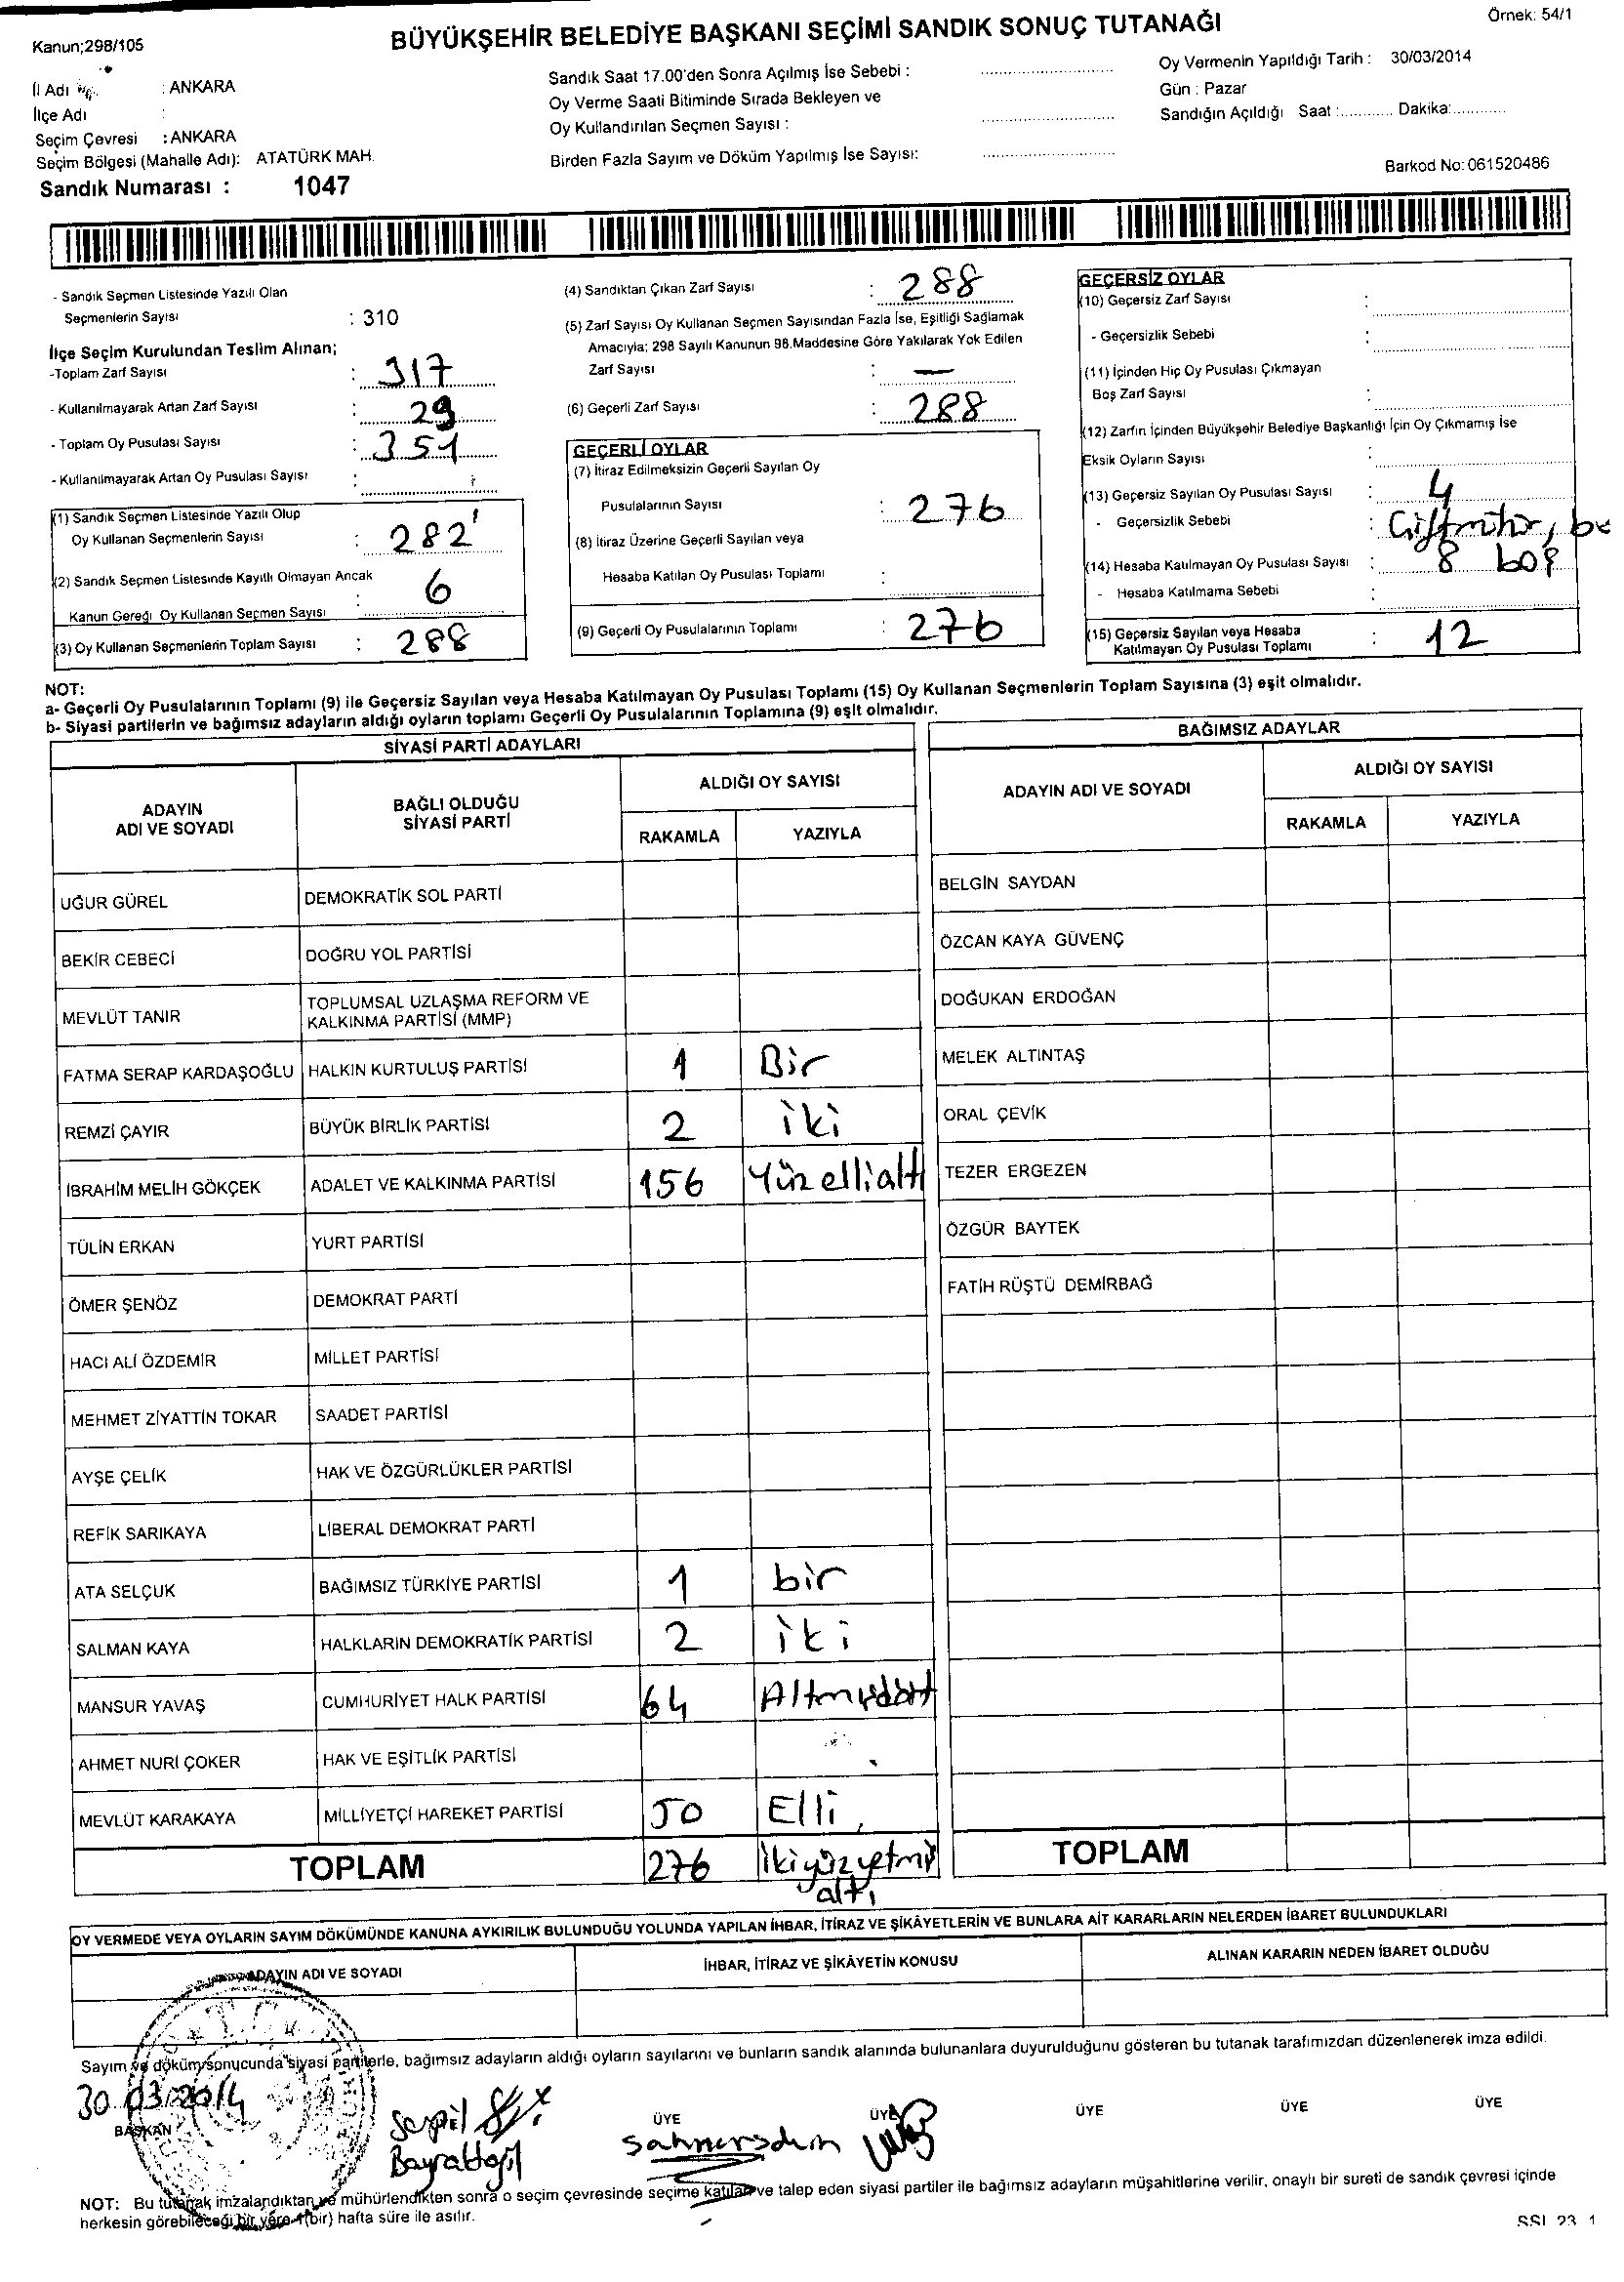 Örnek: 54/1
Kanun;298/105
BÜYÜKŞEHİR BELEDİYE BAŞKANI SEÇİMİ SANDIK SONUÇ TUTANAĞI
İl Adı : ANKARA
İlçe Adı :
Seçim Çevresi : ANKARA
Seçim Bölgesi (Mahalle Adı): ATATÜRK MAH.
Sandık Numarası : 1047
Sandık Saat 17.00'den Sonra Açılmış İse Sebebi :
Oy Verme Saati Bitiminde Sırada Bekleyen ve
Oy Kullandırılan Seçmen Sayısı :
Birden Fazla Sayım ve Döküm Yapılmış İse Sayısı:
Oy Vermenin Yapıldığı Tarih : 30/03/2014
Gün : Pazar
Sandığın Açıldığı Saat :............ Dakika:............
Barkod No: 061520486
- Sandık Seçmen Listesinde Yazılı Olan
Seçmenlerin Sayısı : 310
İlçe Seçim Kurulundan Teslim Alınan;
-Toplam Zarf Sayısı : 317
- Kullanılmayarak Artan Zarf Sayısı : 29
- Toplam Oy Pusulası Sayısı : 351
- Kullanılmayarak Artan Oy Pusulası Sayısı :
(1) Sandık Seçmen Listesinde Yazılı Olup
Oy Kullanan Seçmenlerin Sayısı : 282
(2) Sandık Seçmen Listesinde Kayıtlı Olmayan Ancak
Kanun Gereği Oy Kullanan Seçmen Sayısı : 6
(3) Oy Kullanan Seçmenlerin Toplam Sayısı : 288
(4) Sandıktan Çıkan Zarf Sayısı : 288
(5) Zarf Sayısı Oy Kullanan Seçmen Sayısından Fazla İse, Eşitliği Sağlamak
Amacıyla; 298 Sayılı Kanunun 98.Maddesine Göre Yakılarak Yok Edilen
Zarf Sayısı : —
(6) Geçerli Zarf Sayısı : 288
GEÇERLİ OYLAR
(7) İtiraz Edilmeksizin Geçerli Sayılan Oy
Pusulalarının Sayısı : 276
(8) İtiraz Üzerine Geçerli Sayılan veya
Hesaba Katılan Oy Pusulası Toplamı :
(9) Geçerli Oy Pusulalarının Toplamı : 276
GEÇERSİZ OYLAR
(10) Geçersiz Zarf Sayısı :
- Geçersizlik Sebebi :
(11) İçinden Hiç Oy Pusulası Çıkmayan
Boş Zarf Sayısı :
(12) Zarfın İçinden Büyükşehir Belediye Başkanlığı İçin Oy Çıkmamış İse
Eksik Oyların Sayısı :
(13) Geçersiz Sayılan Oy Pusulası Sayısı : 4
- Geçersizlik Sebebi :
(14) Hesaba Katılmayan Oy Pusulası Sayısı : 8 boş
- Hesaba Katılmama Sebebi :
(15) Geçersiz Sayılan veya Hesaba
Katılmayan Oy Pusulası Toplamı : 12
NOT:
a- Geçerli Oy Pusulalarının Toplamı (9) ile Geçersiz Sayılan veya Hesaba Katılmayan Oy Pusulası Toplamı (15) Oy Kullanan Seçmenlerin Toplam Sayısına (3) eşit olmalıdır.
b- Siyasi partilerin ve bağımsız adayların aldığı oyların toplamı Geçerli Oy Pusulalarının Toplamına (9) eşit olmalıdır.
SİYASİ PARTİ ADAYLARI
ADAYIN ADI VE SOYADI
BAĞLI OLDUĞU SİYASİ PARTİ
ALDIĞI OY SAYISI
RAKAMLA YAZIYLA
UĞUR GÜREL DEMOKRATİK SOL PARTİ
BEKİR CEBECİ DOĞRU YOL PARTİSİ
MEVLÜT TANIR TOPLUMSAL UZLAŞMA REFORM VE
KALKINMA PARTİSİ (MMP)
FATMA SERAP KARDAŞOĞLU HALKIN KURTULUŞ PARTİSİ 1 Bir
REMZİ ÇAYIR BÜYÜK BİRLİK PARTİSİ 2 iki
İBRAHİM MELİH GÖKÇEK ADALET VE KALKINMA PARTİSİ 156 Yüzellialtı
TÜLİN ERKAN YURT PARTİSİ
ÖMER ŞENÖZ DEMOKRAT PARTİ
HACI ALİ ÖZDEMİR MİLLET PARTİSİ
MEHMET ZİYATTİN TOKAR SAADET PARTİSİ
AYŞE ÇELİK HAK VE ÖZGÜRLÜKLER PARTİSİ
REFİK SARIKAYA LİBERAL DEMOKRAT PARTİ
ATA SELÇUK BAĞIMSIZ TÜRKİYE PARTİSİ 1 bir
SALMAN KAYA HALKLARIN DEMOKRATİK PARTİSİ 2 iki
MANSUR YAVAŞ CUMHURİYET HALK PARTİSİ 64 Altmışdört
AHMET NURİ ÇOKER HAK VE EŞİTLİK PARTİSİ
MEVLÜT KARAKAYA MİLLİYETÇİ HAREKET PARTİSİ 50 Elli
TOPLAM 276 ikiyüzyetmiş
altı
BAĞIMSIZ ADAYLAR
ADAYIN ADI VE SOYADI
ALDIĞI OY SAYISI
RAKAMLA YAZIYLA
BELGİN SAYDAN
ÖZCAN KAYA GÜVENÇ
DOĞUKAN ERDOĞAN
MELEK ALTINTAŞ
ORAL ÇEVİK
TEZER ERGEZEN
ÖZGÜR BAYTEK
FATİH RÜŞTÜ DEMİRBAĞ
TOPLAM
OY VERMEDE VEYA OYLARIN SAYIM DÖKÜMÜNDE KANUNA AYKIRILIK BULUNDUĞU YOLUNDA YAPILAN İHBAR, İTİRAZ VE ŞİKÂYETLERİN VE BUNLARA AİT KARARLARIN NELERDEN İBARET BULUNDUKLARI
ADAYIN ADI VE SOYADI
İHBAR, İTİRAZ VE ŞİKÂYETİN KONUSU
ALINAN KARARIN NEDEN İBARET OLDUĞU
Sayım ve döküm sonucunda siyasi partilerle, bağımsız adayların aldığı oyların sayılarını ve bunların sandık alanında bulunanlara duyurulduğunu gösteren bu tutanak tarafımızdan düzenlenerek imza edildi.
30.03.2014
BAŞKAN
ÜYE ÜYE ÜYE ÜYE ÜYE
NOT: Bu tutanak imzalandıktan ve mühürlendikten sonra o seçim çevresinde seçime katılan ve talep eden siyasi partiler ile bağımsız adayların müşahitlerine verilir, onaylı bir sureti de sandık çevresi içinde
herkesin görebileceği bir yere 1(bir) hafta süre ile asılır.